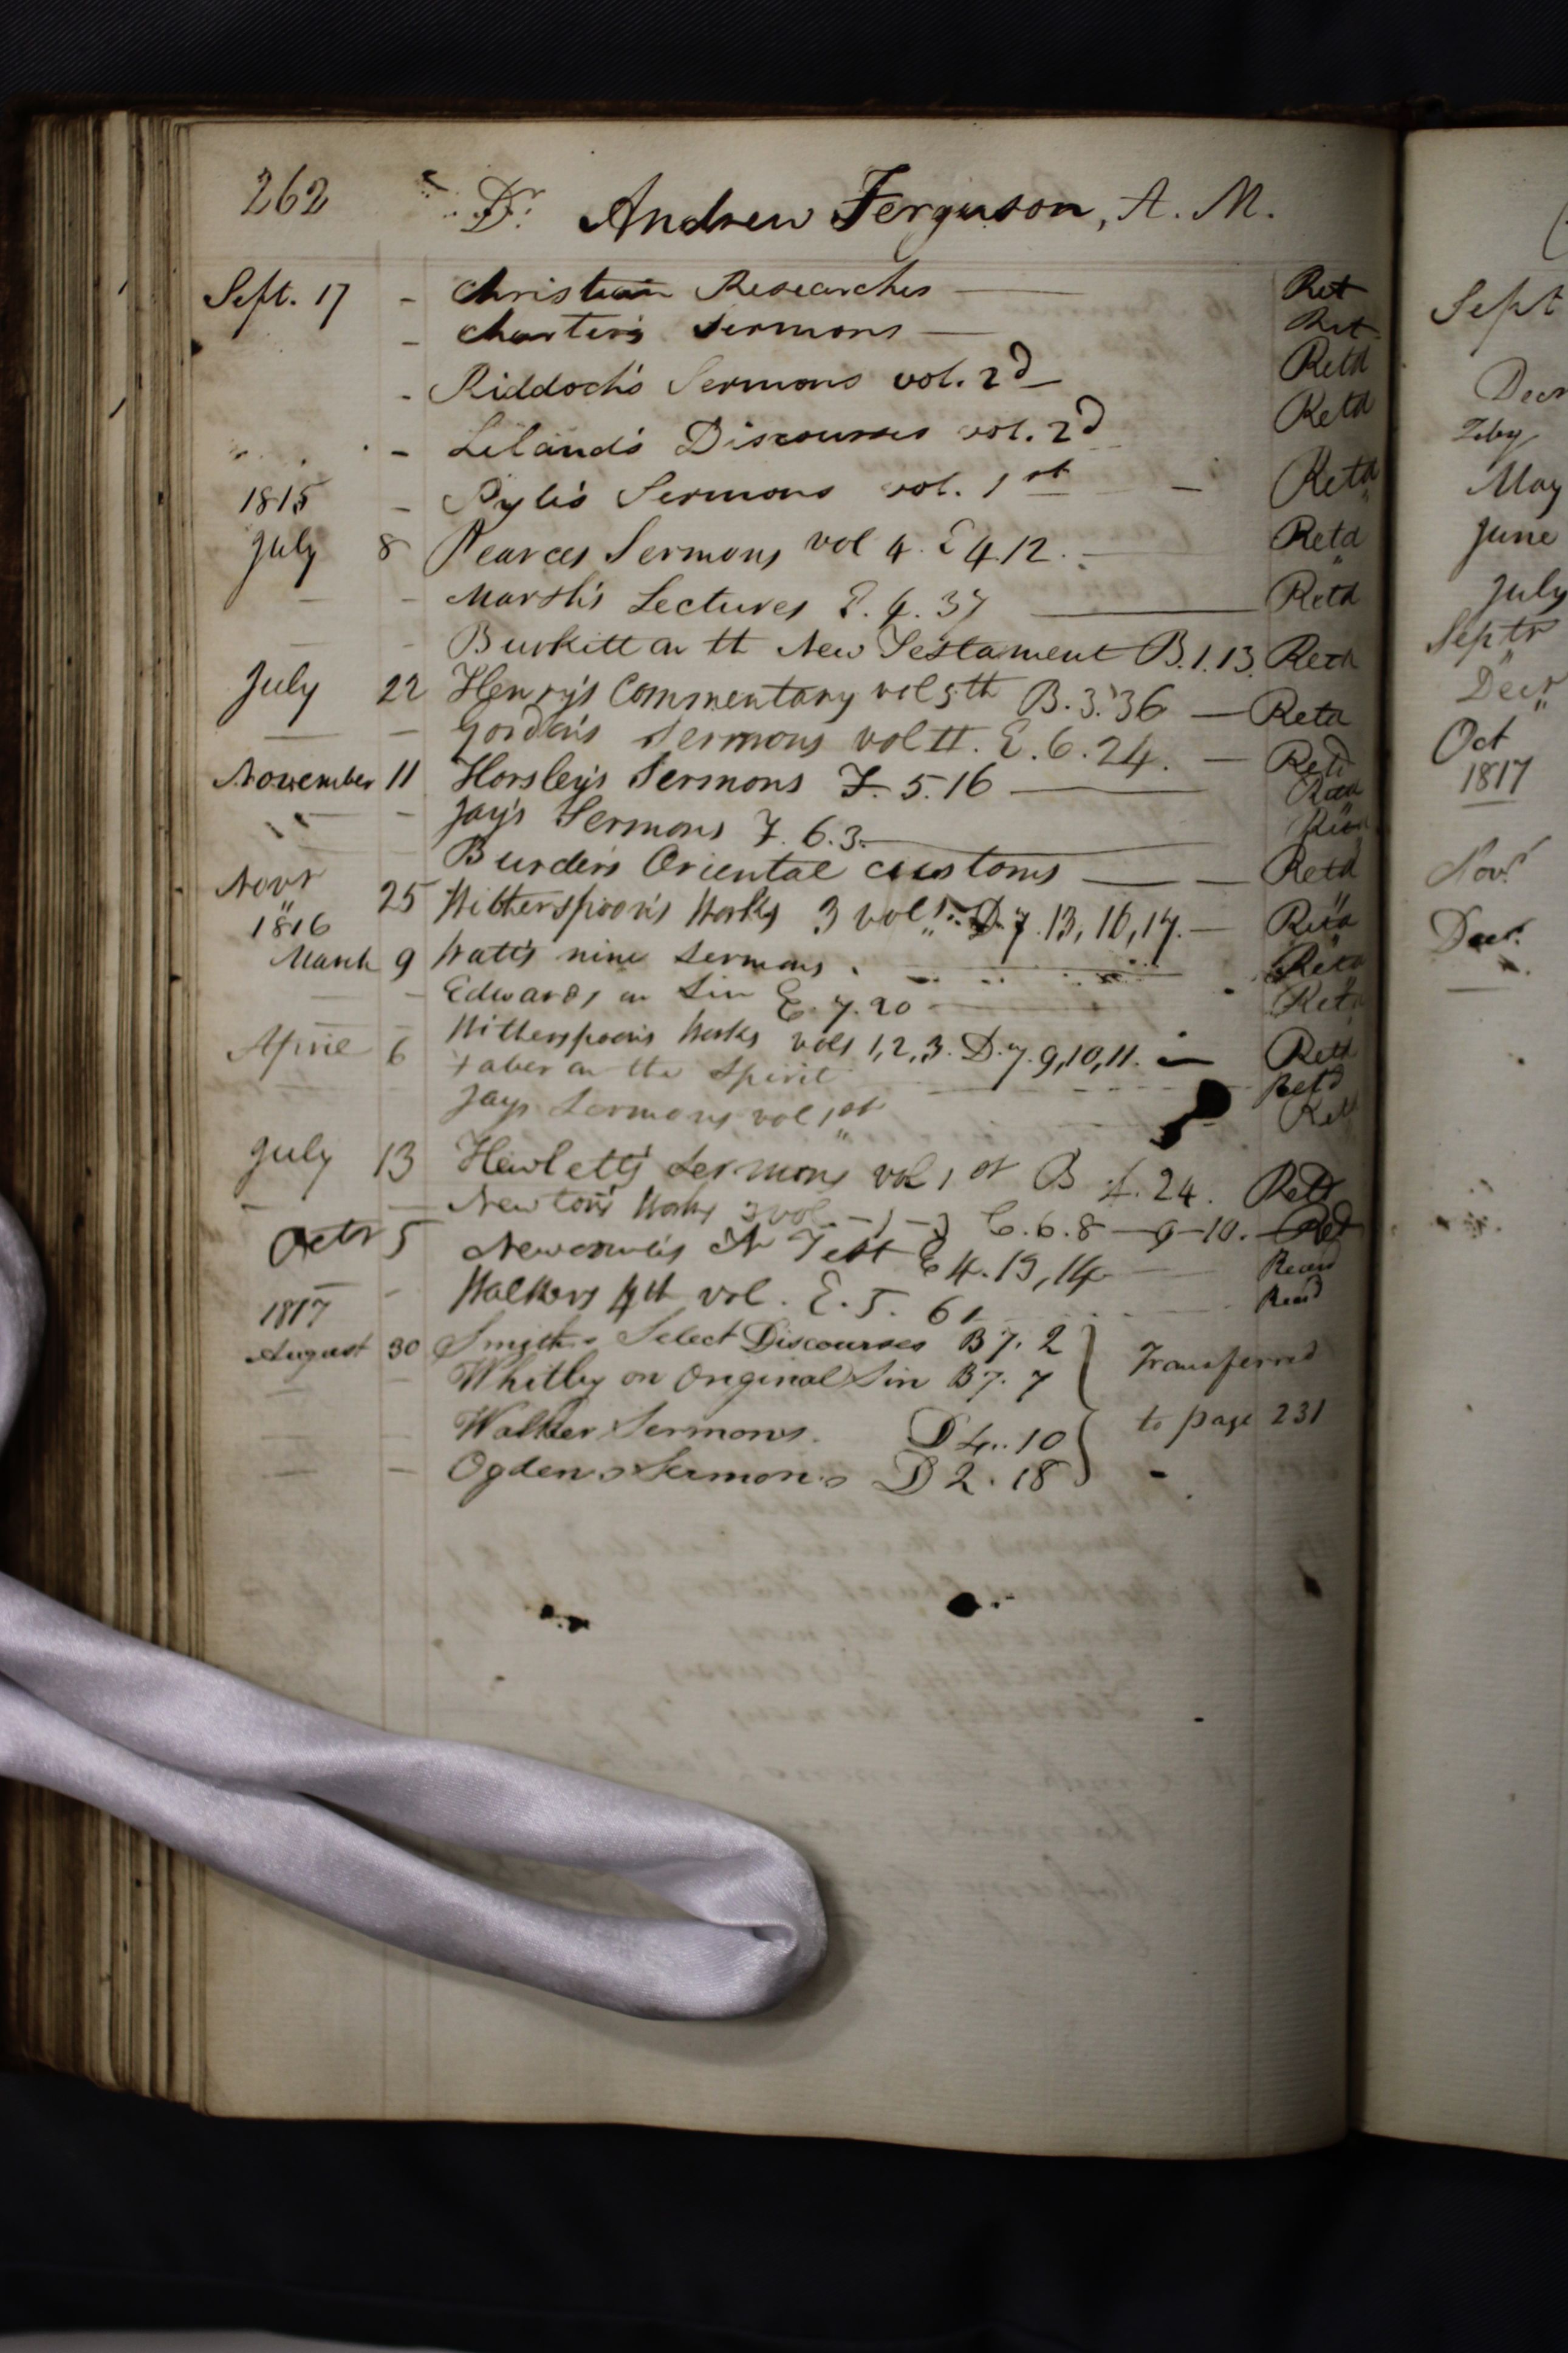 262 Dr. Andrew Ferguson, A. M.
Sept. 17 - Christian Researches — Ret
- Charter's Sermons — Ret
- Riddoch's Sermons vol. 2d — Retd
- Leland's Discourses vol. 2d Retd
1815 - Pyle's Sermons vol. 1st — Retd
July 8 Pearces Sermons vol 4. E 4.12. — Retd
— - Marsh's Lectures E. 4. 37 — Retd
— - Burkitt on tt New Testament B.1.13. Retd
July 22 Henry's Commentary vol 5th B. 3. 36 — Retd
— - Gordon's Sermons vol II. E. 6. 24. — Retd
November 11 Horsley's Sermons F. 5. 16 — Retd
— - Jay's Sermons F. 6. 3. — Retd
Burder's Oriental customs — — Retd
Novr 25 Witherspoon's Works 3 vols. D. 7. 13, 16, 17. — Retd
1816
March 9 Watt's nine Sermons. — Retd
— - Edwards on Sin E. 7. 20 — Retd
Aprile 6 Witherspoon's Works vols 1, 2, 3. D. 7. 9, 10, 11. — Retd
Faber on the Spirit — Retd
Jays Sermons vol 1st Retd
July 13 Hewlett's Sermons vol 1st B 4. 24. Retd
— — Newton's Works 3 vol — 1 — 3 C. 6. 8 — 9 — 10. — Ret
Octr 5 Newcome's N Test E 4. 13, 14 — Retd
— - Walkers 4th vol. E. 5. 61 — Retd
1817
August 30 Smith's Select Discourses B 7. 2 } Transferred
— — Whitby on Original Sin B 7. 7
— — Walker Sermons. D 4. 10 } to page 231
— — Ogden's Sermons D 2. 18 -
Sept
Decr
Feby
May
June
July
Septr
Decr
Oct
1817
Novr
Decr.